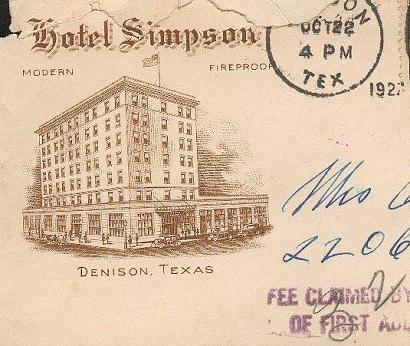 Hotel Simpson
MODERN FIREPROOF
DENISON, TEXAS
OCT 22
4 PM
TEX
192
Mrs
2206
FEE CLAIMED BY
OF FIRST